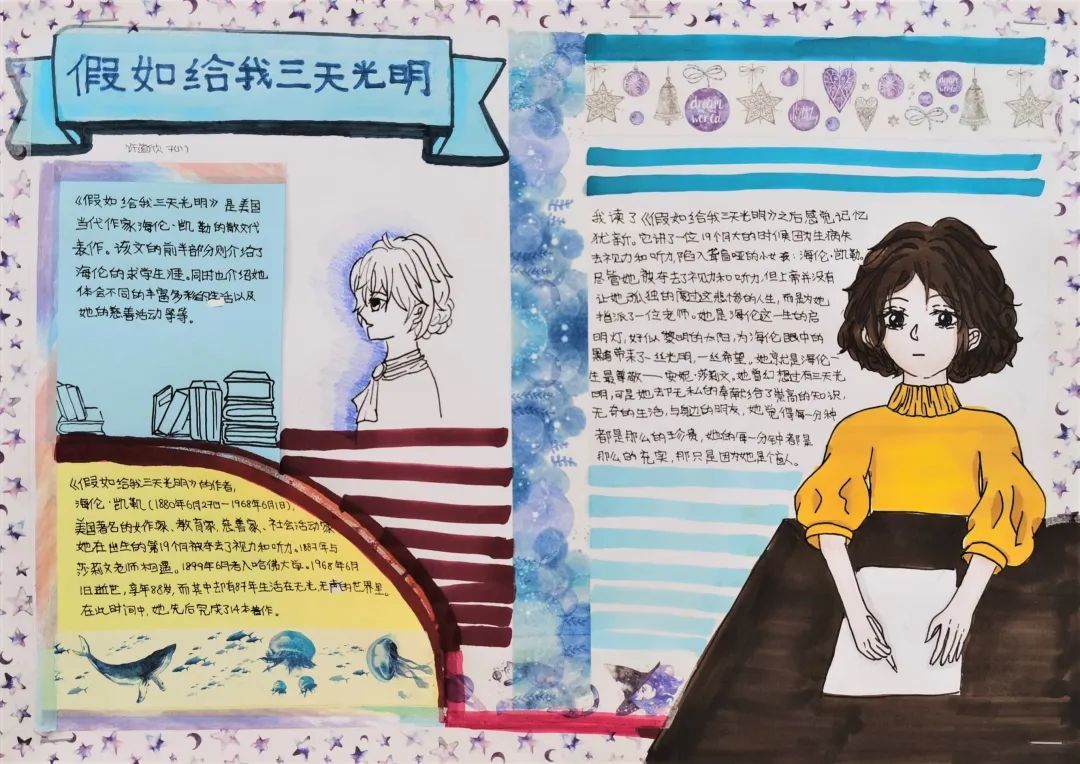 假如给我三天光明
7(1)
《假如给我三天光明》是美国
当代作家海伦·凯勒的散文代
表作。该文的前半部分则介绍了
海伦的求学生涯。同时也介绍她
体会不同的丰富多彩的生活以及
她的慈善活动等等。
《假如给我三天光明》的作者,
海伦·凯勒(1880年6月27日~1968年6月1日),
美国著名的女作家、教育家、慈善家、社会活动家
她在出生的第19个月被夺去了视力和听力。1887年与
莎莉文老师相遇。1899年6月考入哈佛大学。1968年6月
1日逝世,享年88岁,而其中却有87年生活在无光,无声的世界里。
在此时间中,她先后完成了14本著作。
dream
world
happy
dream
world
我读了《假如给我三天光明》之后感觉记忆
犹新。它讲了一位19个月大的时候因为生病失
去视力和听力,陷入聋盲哑的小女孩:海伦·凯勒。
尽管她被夺去了视力和听力,但上帝并没有
让她孤独的度过这悲惨的人生,而是为她
指派了一位老师。她是海伦这一生的启
明灯,好似黎明的太阳,为海伦眼中的
黑暗带来了一丝光明,一丝希望。她就是海伦一
生最尊敬——安妮·莎莉文。她曾幻想过有三天光
明,可是她却无私的奉献给了崇高的知识,
无奇的生活,与身边的朋友,她觉得每一分钟
都是那么的珍贵,她的每一分钟都是
那么的充实,那只是因为她是个盲人。